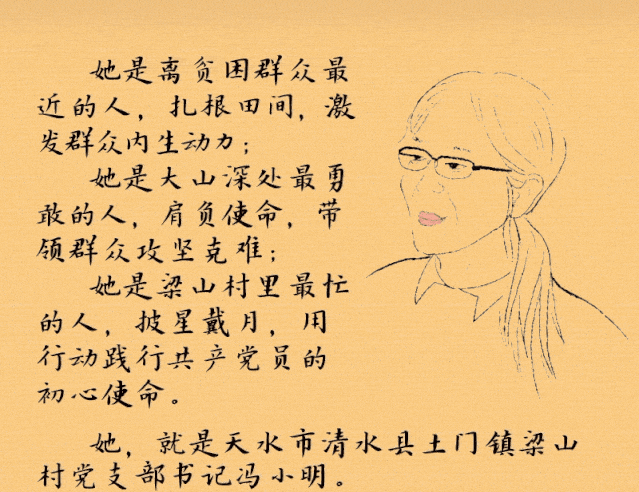 她是离贫困群众最
近的人，扎根田间，激
发群众内生动力；
她是大山深处最勇
敢的人，肩负使命，带
领群众攻坚克难；
她是梁山村里最忙
的人，披星戴月，用
行动践行共产党员的
初心使命。
她，就是天水市清水县土门镇梁山
村党支部书记冯小明。